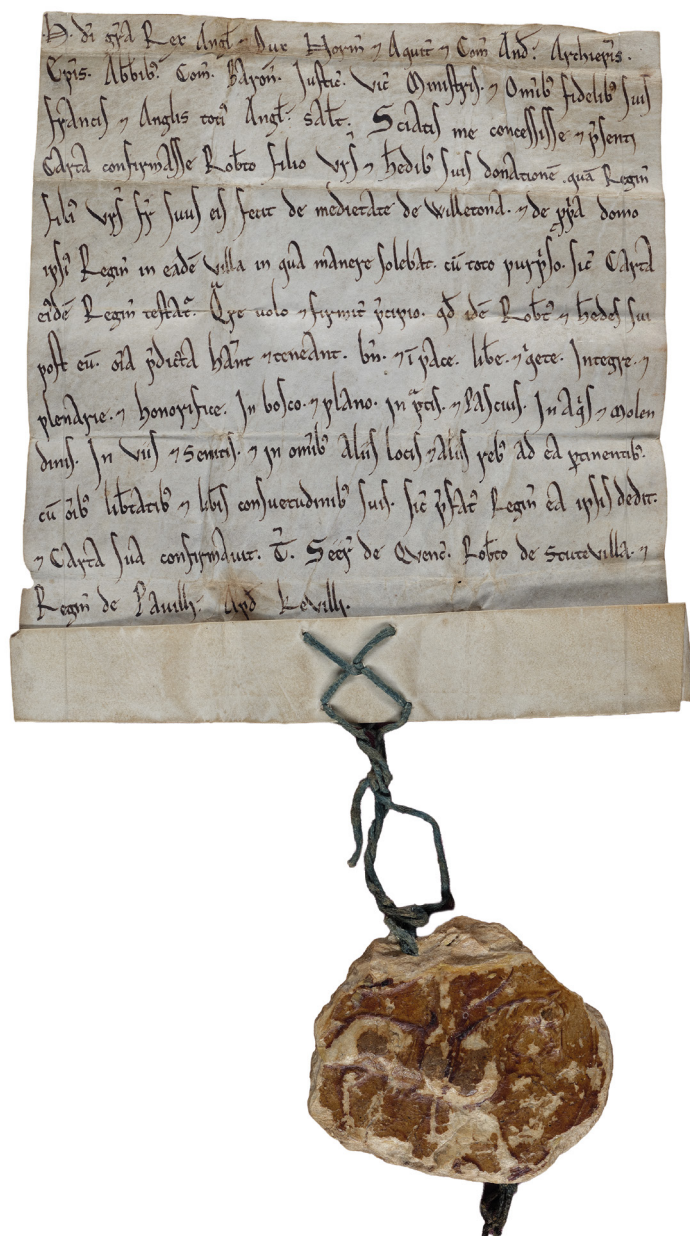 H. di gra Rex Angl ⁊ Dux Norm ⁊ Aquit ⁊ Com And. Archiepis.
Epis. Abbib. Com. Baron. Justic. Vic Ministris. ⁊ Omib fidelib suis
francis ⁊ Anglis toti Angl. salt. Sciatis me concessisse ⁊ psenti
Carta confirmasse Robto filio Urs ⁊ hedib suis donatione qua Regin
fili Urs fr suus eis fecit de medietate de Willetona. ⁊ de ppa domo
ipsi Regin in eade villa in qua manere solebat. cu toto purpso. sic Carta
eide Regin testat. Qre volo ⁊ firmit pcipio. qd ide Robt ⁊ hedes sui
post eu. oia pdicta hant ⁊ teneant. bn. ⁊ i pace. libe. ⁊ qete. Integre. ⁊
plenarie. ⁊ honorifice. In bosco. ⁊ plano. in ptis. ⁊ Pascuis. In Aqis ⁊ Molen
dinis. In viis ⁊ Semitis. ⁊ in omib Aliis locis ⁊ aliis reb ad ea ptinentib.
cu oib libtatib ⁊ libis consuetudinib suis. sic pfat Regin ea ipsis dedit.
⁊ Carta sua confirmavit. T. Seer de Quenc. Robto de Stutevilla. ⁊
Regin de Pavilli. Apd Kevilli.